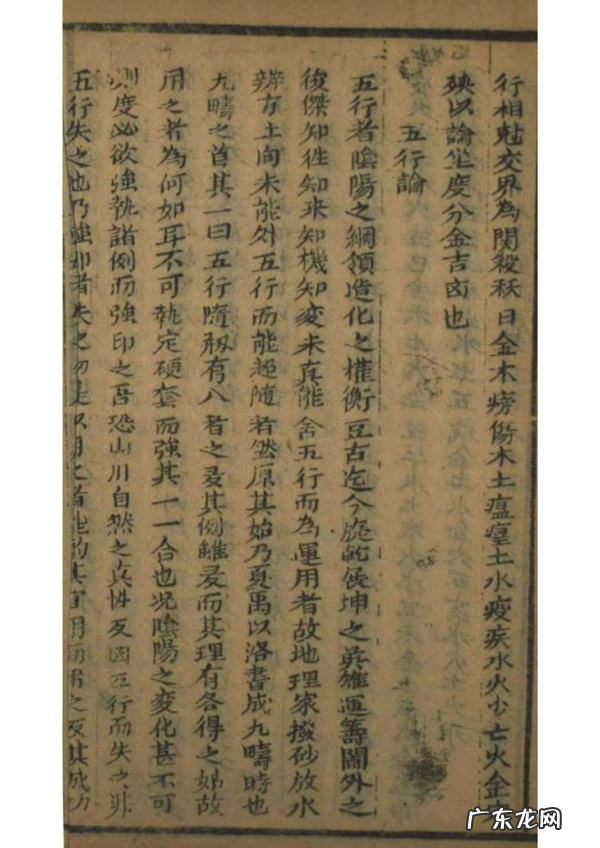 行相尅交界為関殺秋曰金木癆傷木土瘟瘟土水疫疾水火少亡火金
殃以論坐度分金吉凶也
五行論
五行者陰陽之綱領造化之權衡亘古迄今旋乾俟坤之英雄運籌閫外之
後傑知徃知来知機知変未真能舍五行而為運用者故地理家撥砂放水
辨方土向未能外五行而能趋随者然原其始乃夏禹以洛書成九疇時也
九疇之首其一曰五行随刱有八者之多其例雖多而其理有各得之婦故
用之者為何如耳不可執定硬套而強其一一合也况陰陽之変化甚不可
測度必欲強執諸例而強印之吾恐山川自然之真性反因五行而失之非
五行失之也乃強印者失之
広东龙网